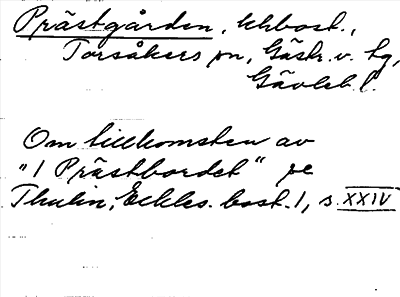 Prästgården, khbost.,
Torsåkers sn, Gästr. v. tg,
Gävleb. l.
Om tillkomsten av
"1 Prästbordet" se
Thulin, Eckles. bost. 1, s. XXIV